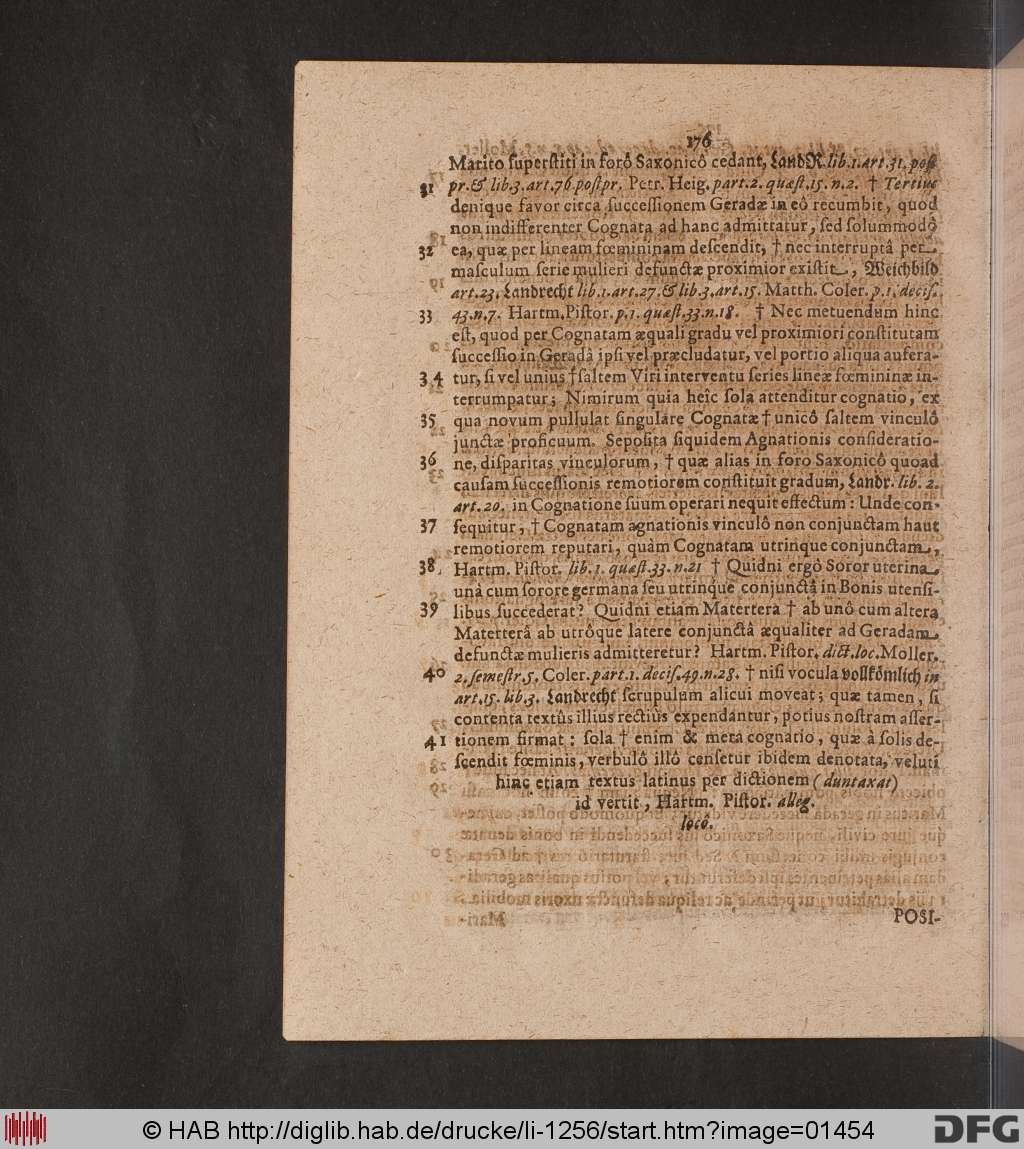 176
Marito superstiti in forô Saxonicô cedant, LandR. lib.1.art.31. post
31 pr.& lib.3.art.76.post pr. Petr. Heig. part.2. quæst.15. n.2. † Tertius
denique favor circa successionem Geradæ in eô recumbit, quod
non indifferenter Cognata ad hanc admittatur, sed solummodô
32 ea, quæ per lineam fœmininam descendit, † nec interruptâ per
masculum serie mulieri defunctæ proximior existit, Weichbild
art.23. Landrecht lib.1.art.27.& lib.3.art.15. Matth. Coler. p.1. decis.
33 43.n.7. Hartm. Pistor. p.1. quæst.33.n.18. † Nec metuendum hinc
est, quod per Cognatam æquali gradu vel proximiori constitutam
successio in Geradâ ipsi vel præcludatur, vel portio aliqua aufera-
34 tur, si vel unius † saltem Viri interventu series lineæ fœmininæ in-
terrumpatur; Nimirum quia heic sola attenditur cognatio, ex
35 qua novum pullulat singulare Cognatæ † unicô saltem vinculô
junctæ proficuum. Seposita siquidem Agnationis consideratio-
36 ne, disparitas vinculorum, † quæ alias in foro Saxonicô quoad
causam successionis remotiorem constituit gradum, Landr. lib. 2.
art.20. in Cognatione suum operari nequit effectum: Unde con-
37 sequitur, † Cognatam agnationis vinculô non conjunctam haut
remotiorem reputari, quàm Cognatam utrinque conjunctam,
38 Hartm. Pistor. lib. 1. quæst.33. n.21 † Quidni ergô Soror uterina
unà cum sorore germana seu utrinque conjunctâ in Bonis utensi-
39 libus succederat? Quidni etiam Matertera † ab unô cum altera
Materterâ ab utrôque latere conjunctâ æqualiter ad Geradam
defunctæ mulieris admitteretur? Hartm. Pistor. dict. loc. Moller.
40 2. semestr.5. Coler. part.1. decis.49.n.28. † nisi vocula vollkömlich in
art.15. lib.3. Landrecht scrupulum alicui moveat; quæ tamen, si
contenta textûs illius rectiùs expendantur, potius nostram asser-
41 tionem firmat: sola † enim & mera cognatio, quæ à solis de-
scendit fœminis, verbulô illô censetur ibidem denotata, veluti
hinc etiam textus latinus per dictionem (duntaxat)
id vertit, Hartm. Pistor. alleg.
locô.
POSI-
© HAB http://diglib.hab.de/drucke/li-1256/start.htm?image=01454
DFG